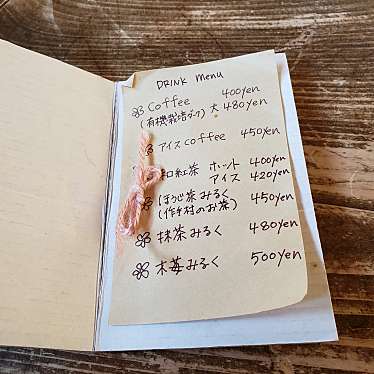 DRINK menu
Coffee 400yen
(有機栽培マーク) 大 480yen
アイスcoffee 450yen
和紅茶 ホット 400yen
アイス 420yen
ほうじ茶みるく 450yen
(作手村のお茶)
抹茶みるく 480yen
木苺みるく 500yen